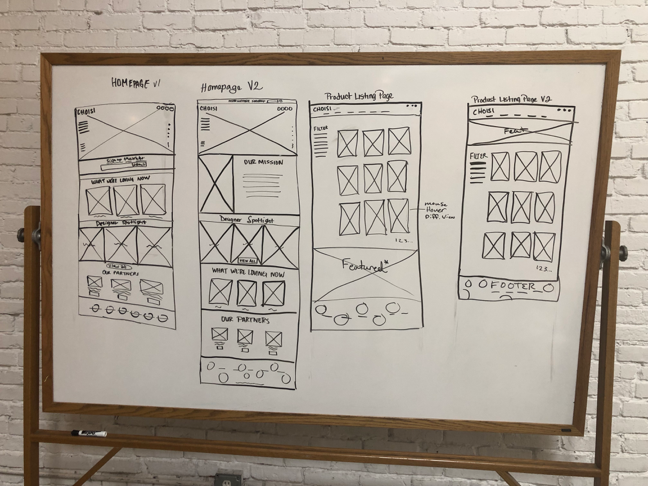 HOMEPAGE V1
CHOISI
WHAT WE'RE LOVING NOW
Designer Spotlight
VIEW ALL
OUR PARTNERS
Homepage V2
CHOISI
OUR MISSION
Designer Spotlight
VIEW ALL
WHAT WE'RE LOVING NOW
OUR PARTNERS
Product Listing Page
CHOISI
FILTER
mouse
Hover
Diff. View
1 2 3 ...
Featured*
Product Listing Page V.2
CHOISI
FILTER
1 2 3 ...
FOOTER